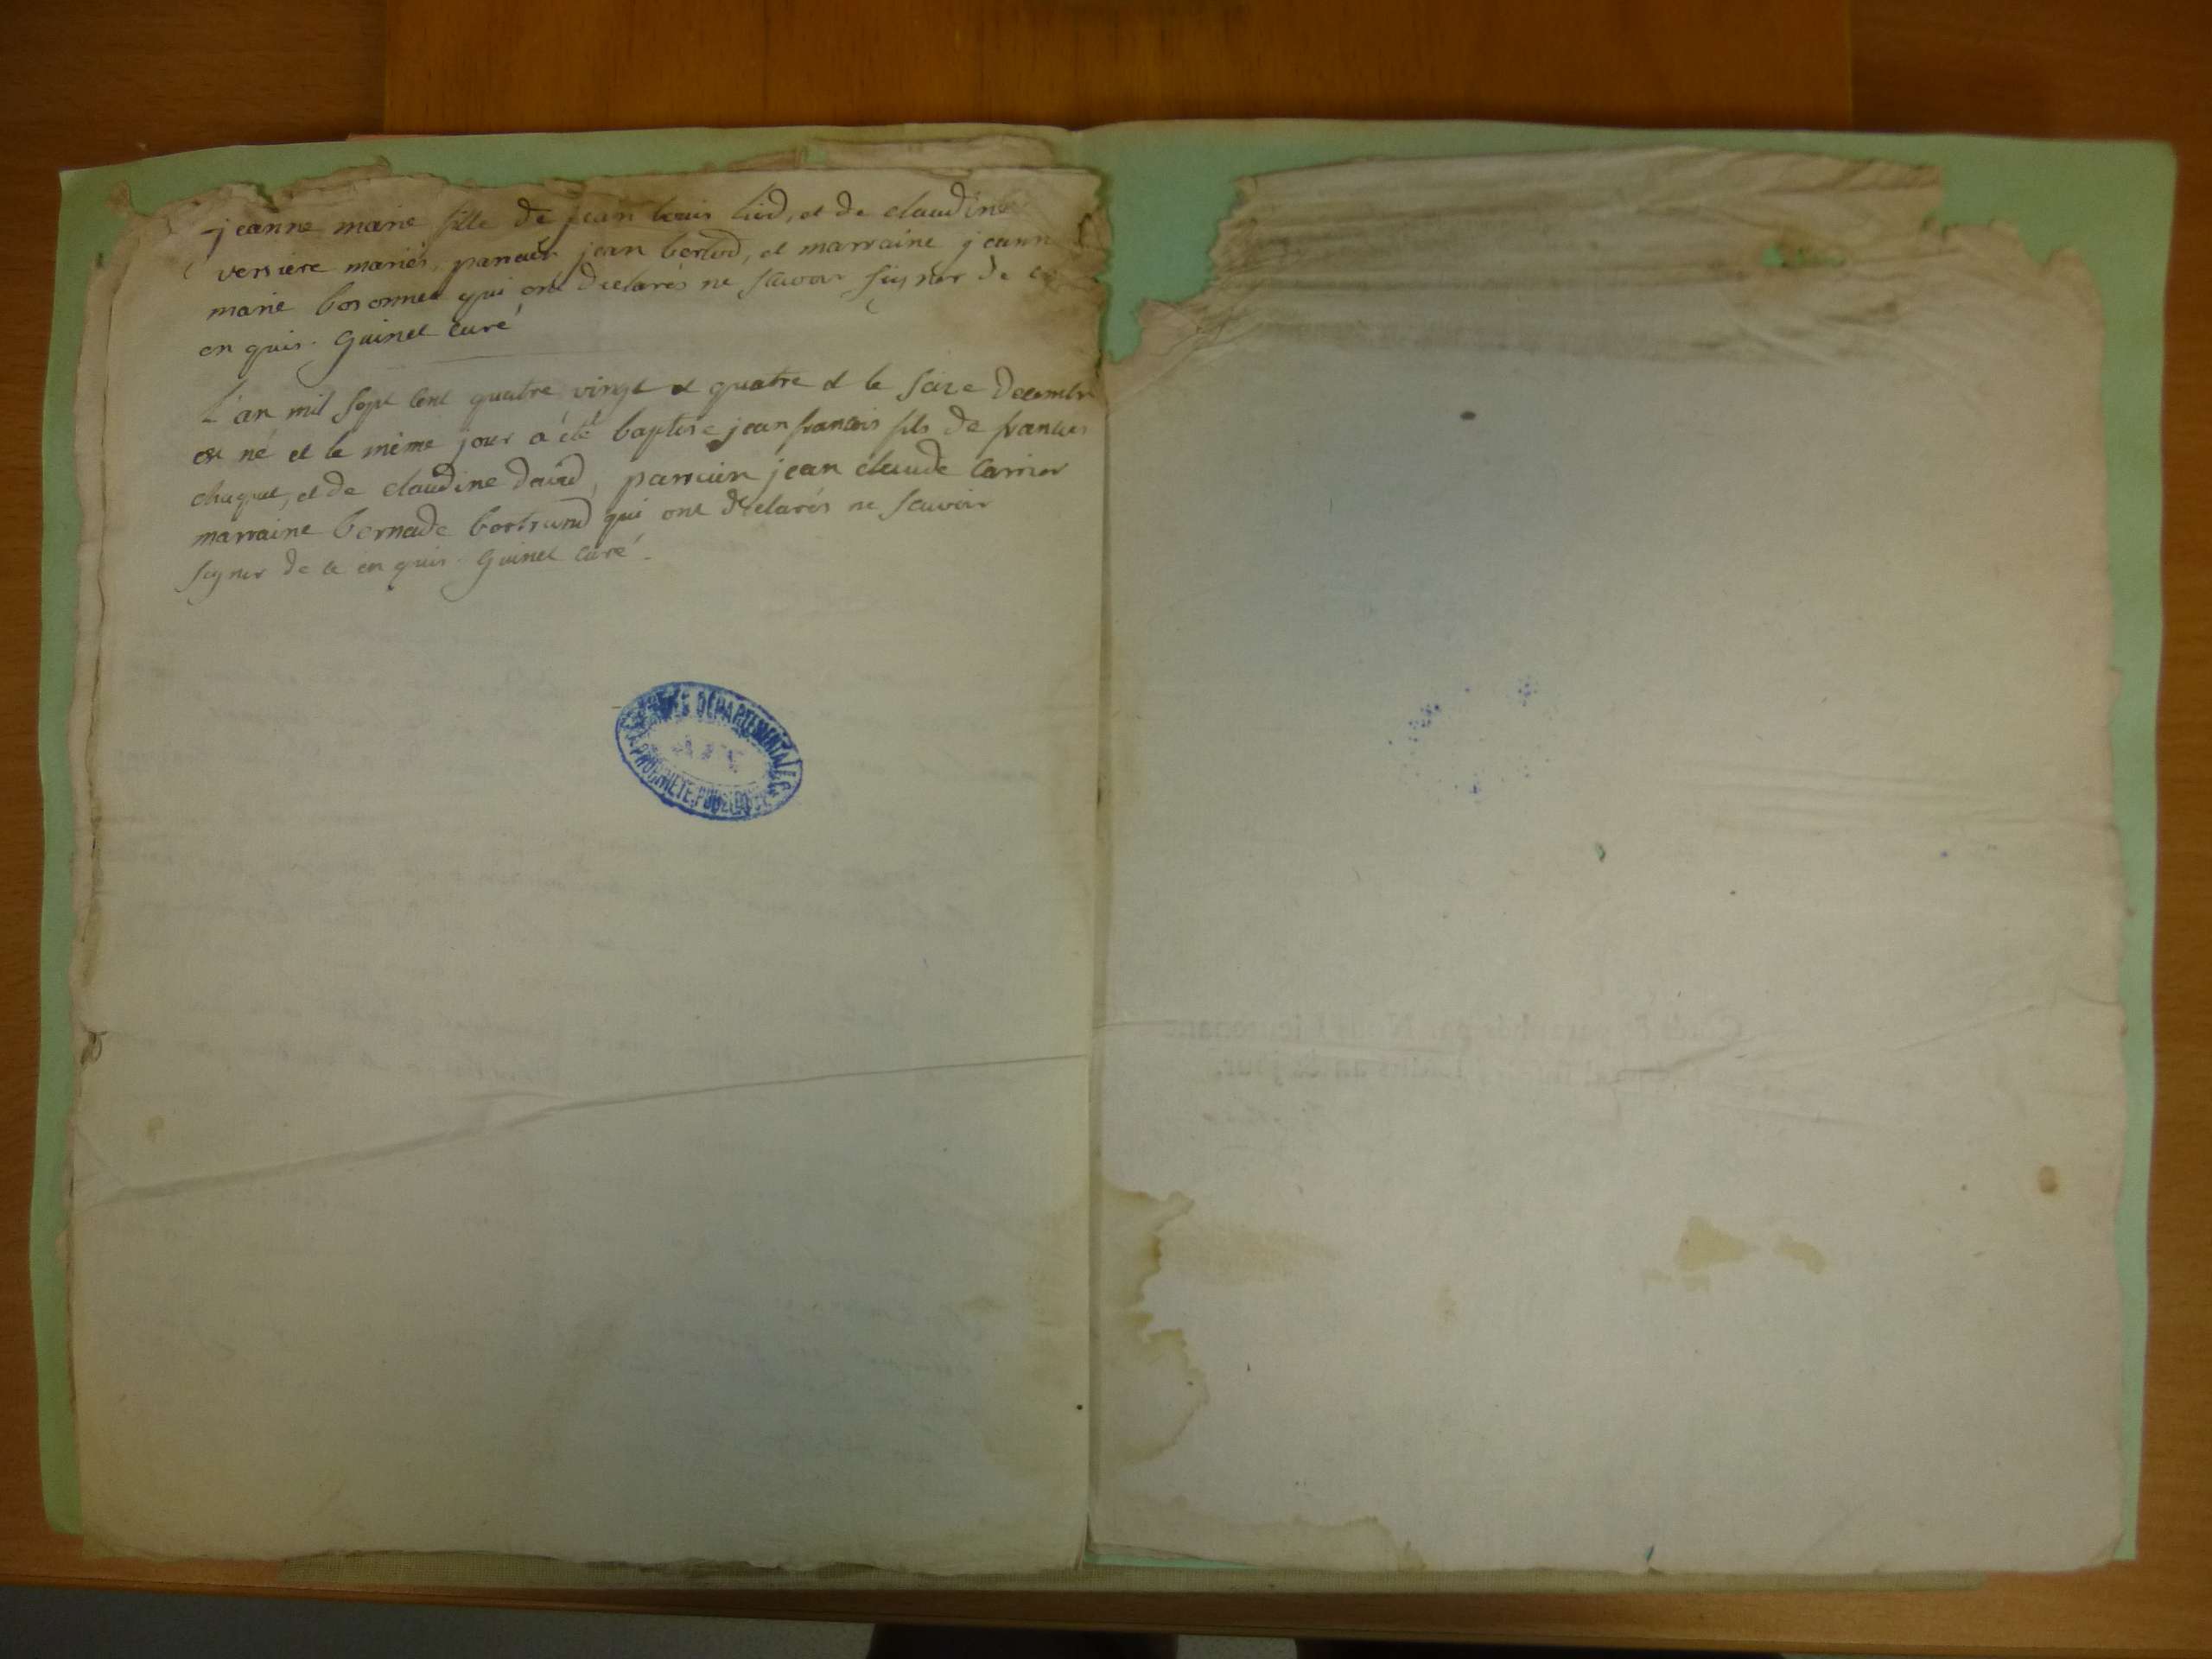 jeanne marie fille de jean louis lied, et de claudine
versiere mariés, parrain jean berlod, et marraine jeann
marie bosonnet qui ont declarés ne scavoir signer de ce
en quis. Guinet curé
L'an mil sept cent quatre vingt et quatre et le seize decembre
est né et le même jour a été baptisé jean francois fils de francois
chaquet, et de claudine david, parrain jean claude carrier
marraine bernade bertrand qui ont declarés ne scavoir
signer de ce en quis. Guinet curé.
DÉPARTEMENTALES
PROPRIÉTÉ PUBLIQUE